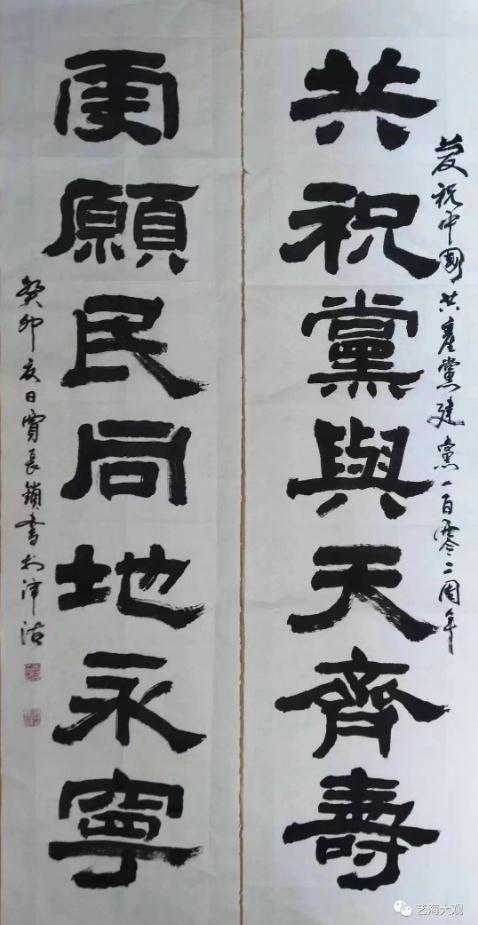 慶祝中國共產黨建黨一百零二周年
共祝黨與天齊壽
更願民同地永寧
癸卯夏日長鎖書於津沽
艺海大观